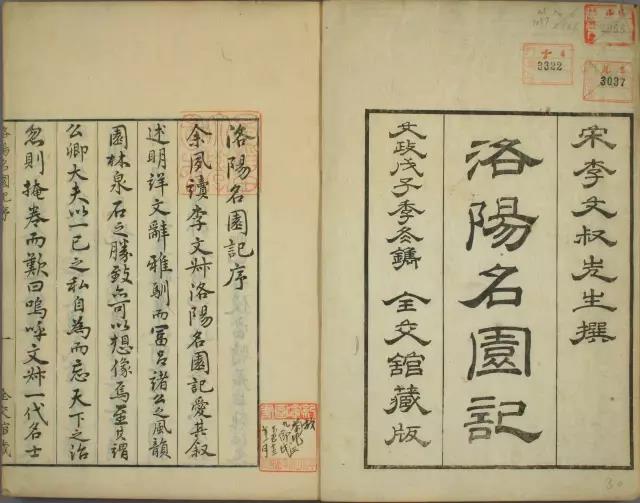 宋李文叔先生撰
洛陽名園記
文政戊子季冬鐫 全交館藏版
3322
3037
30
洛陽名園記序
余夙讀李文叔洛陽名園記愛其叙
述明詳文辭雅馴而冨呂諸公之風韻
園林泉石之勝致亦可以想像焉至其謂
公卿大夫以一己之私自為而忘天下之治
忽則掩卷而歎曰嗚呼文叔一代名士
洛陽名園記序 一 全交館藏